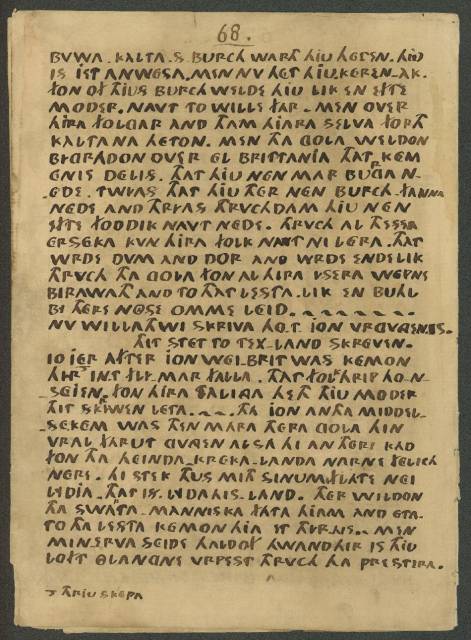 68.
BUWA. KALTA. S BURCH WARTH HIU HETEN. HIU
IS IST ANWESA, MEN NV HET HIU KEREN-AK.
FON OF THIUS BURCH WELDE HIU LIK EN EFTE
MODER, NAVT TO WILLE FAR - MEN OVER
HIRA FOLGAR AND THAM HIARA SELVA FORTH
KALTANA HETON. MEN THA GOLA WELDON
BI GRADON OVER EL BRITTANIA THAT KEM
ENIS DELIS. THAT HIU NEN MAR BURGA N-
EDE. TWIAS THAT HIU THER NEN BURCH-FAMNA
NEDE AND THRIAS THRVCHDAM HIU NEN
EFTE FODDIK NAVT NEDE. THRVCH AL THESSA
ERSEKA KVN HIRA FOLK NAVT NI LERA. THAT
WRDE DVM AND DOR AND WRDE ENDELIK
THRVCH THA GOLA FON AL HIRA YSERA WEPNE
BIRAWATH AND TO THAT LESTA. LIK EN BUHL
BI THERE NOSE OMME LEID.
NV WILLATH WI SKRIVA HO.T JON VRGVNGEN IS.
THIT STET TO TEX-LAND SKREVEN.
10 JER AFTER JON WEI BRIT WAS KEMON
HIR IN.T FLI-MAR FALLA. THAT FOLK HRIP HO-N-
SEIEN. FON HIRA TALINGA HETH THIU MODER
THIT SKRIWEN LETA. THA JON ANTHA MIDDEL-
SE KEM WAS THEN MARA THERA GOLA HIN
VRAL FARUT GVNGEN ALSA HI AN THERE KAD
FON THA HEINDA-KREKA-LANDA NARNE FELICH
NERE. HI STEK THUS MITH SINUM FLATE NEI
LYDIA. THAT IS. LYDA HIS-LAND. THER WILDON
THA SWARTA-MANNISKA FATA HIAM AND ETA.
TO THA LESTA KEMON HIA ET THYRHIS. MEN
MINERVA SEIDE HALD OF HWAND HIR IS THIU
LOFT OLANGNE VRPEST THRVCH THA PRESTERA.
THRIU SKEPA